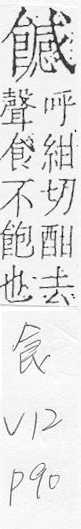 呼紺切酣去
聲食不飽也
食
V12
p90